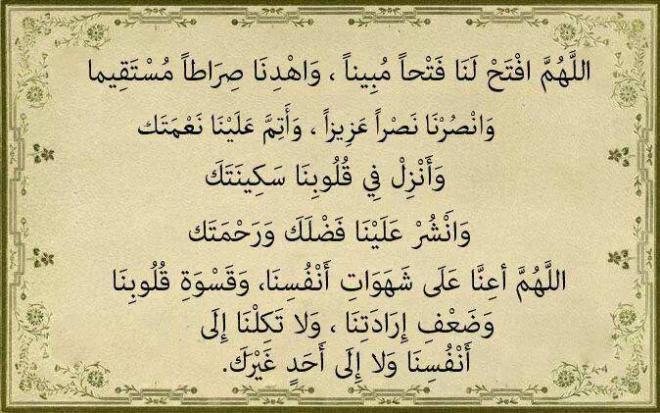 اللَّهُمَّ افْتَحْ لَنَا فَتْحاً مُبِيناً ، وَاهْدِنَا صِرَاطاً مُسْتَقِيما
وَانْصُرْنَا نَصْراً عَزِيزاً ، وَأَتِمَّ عَلَيْنَا نَعْمَتَك
وَأَنْزِلْ فِي قُلُوبِنَا سَكِينَتَكَ
وَانْشُرْ عَلَيْنَا فَضْلَكَ وَرَحْمَتَك
اللَّهُمَّ أعِنَّا عَلَى شَهَوَاتِ أَنْفُسِنَا، وَقَسْوَةِ قُلُوبِنَا
وَضَعْفِ إِرَادَتِنَا ، وَلا تَكلْنَا إِلَى
أَنْفُسِنَا وَلا إِلَى أَحَدٍ غَيْرَكَ.